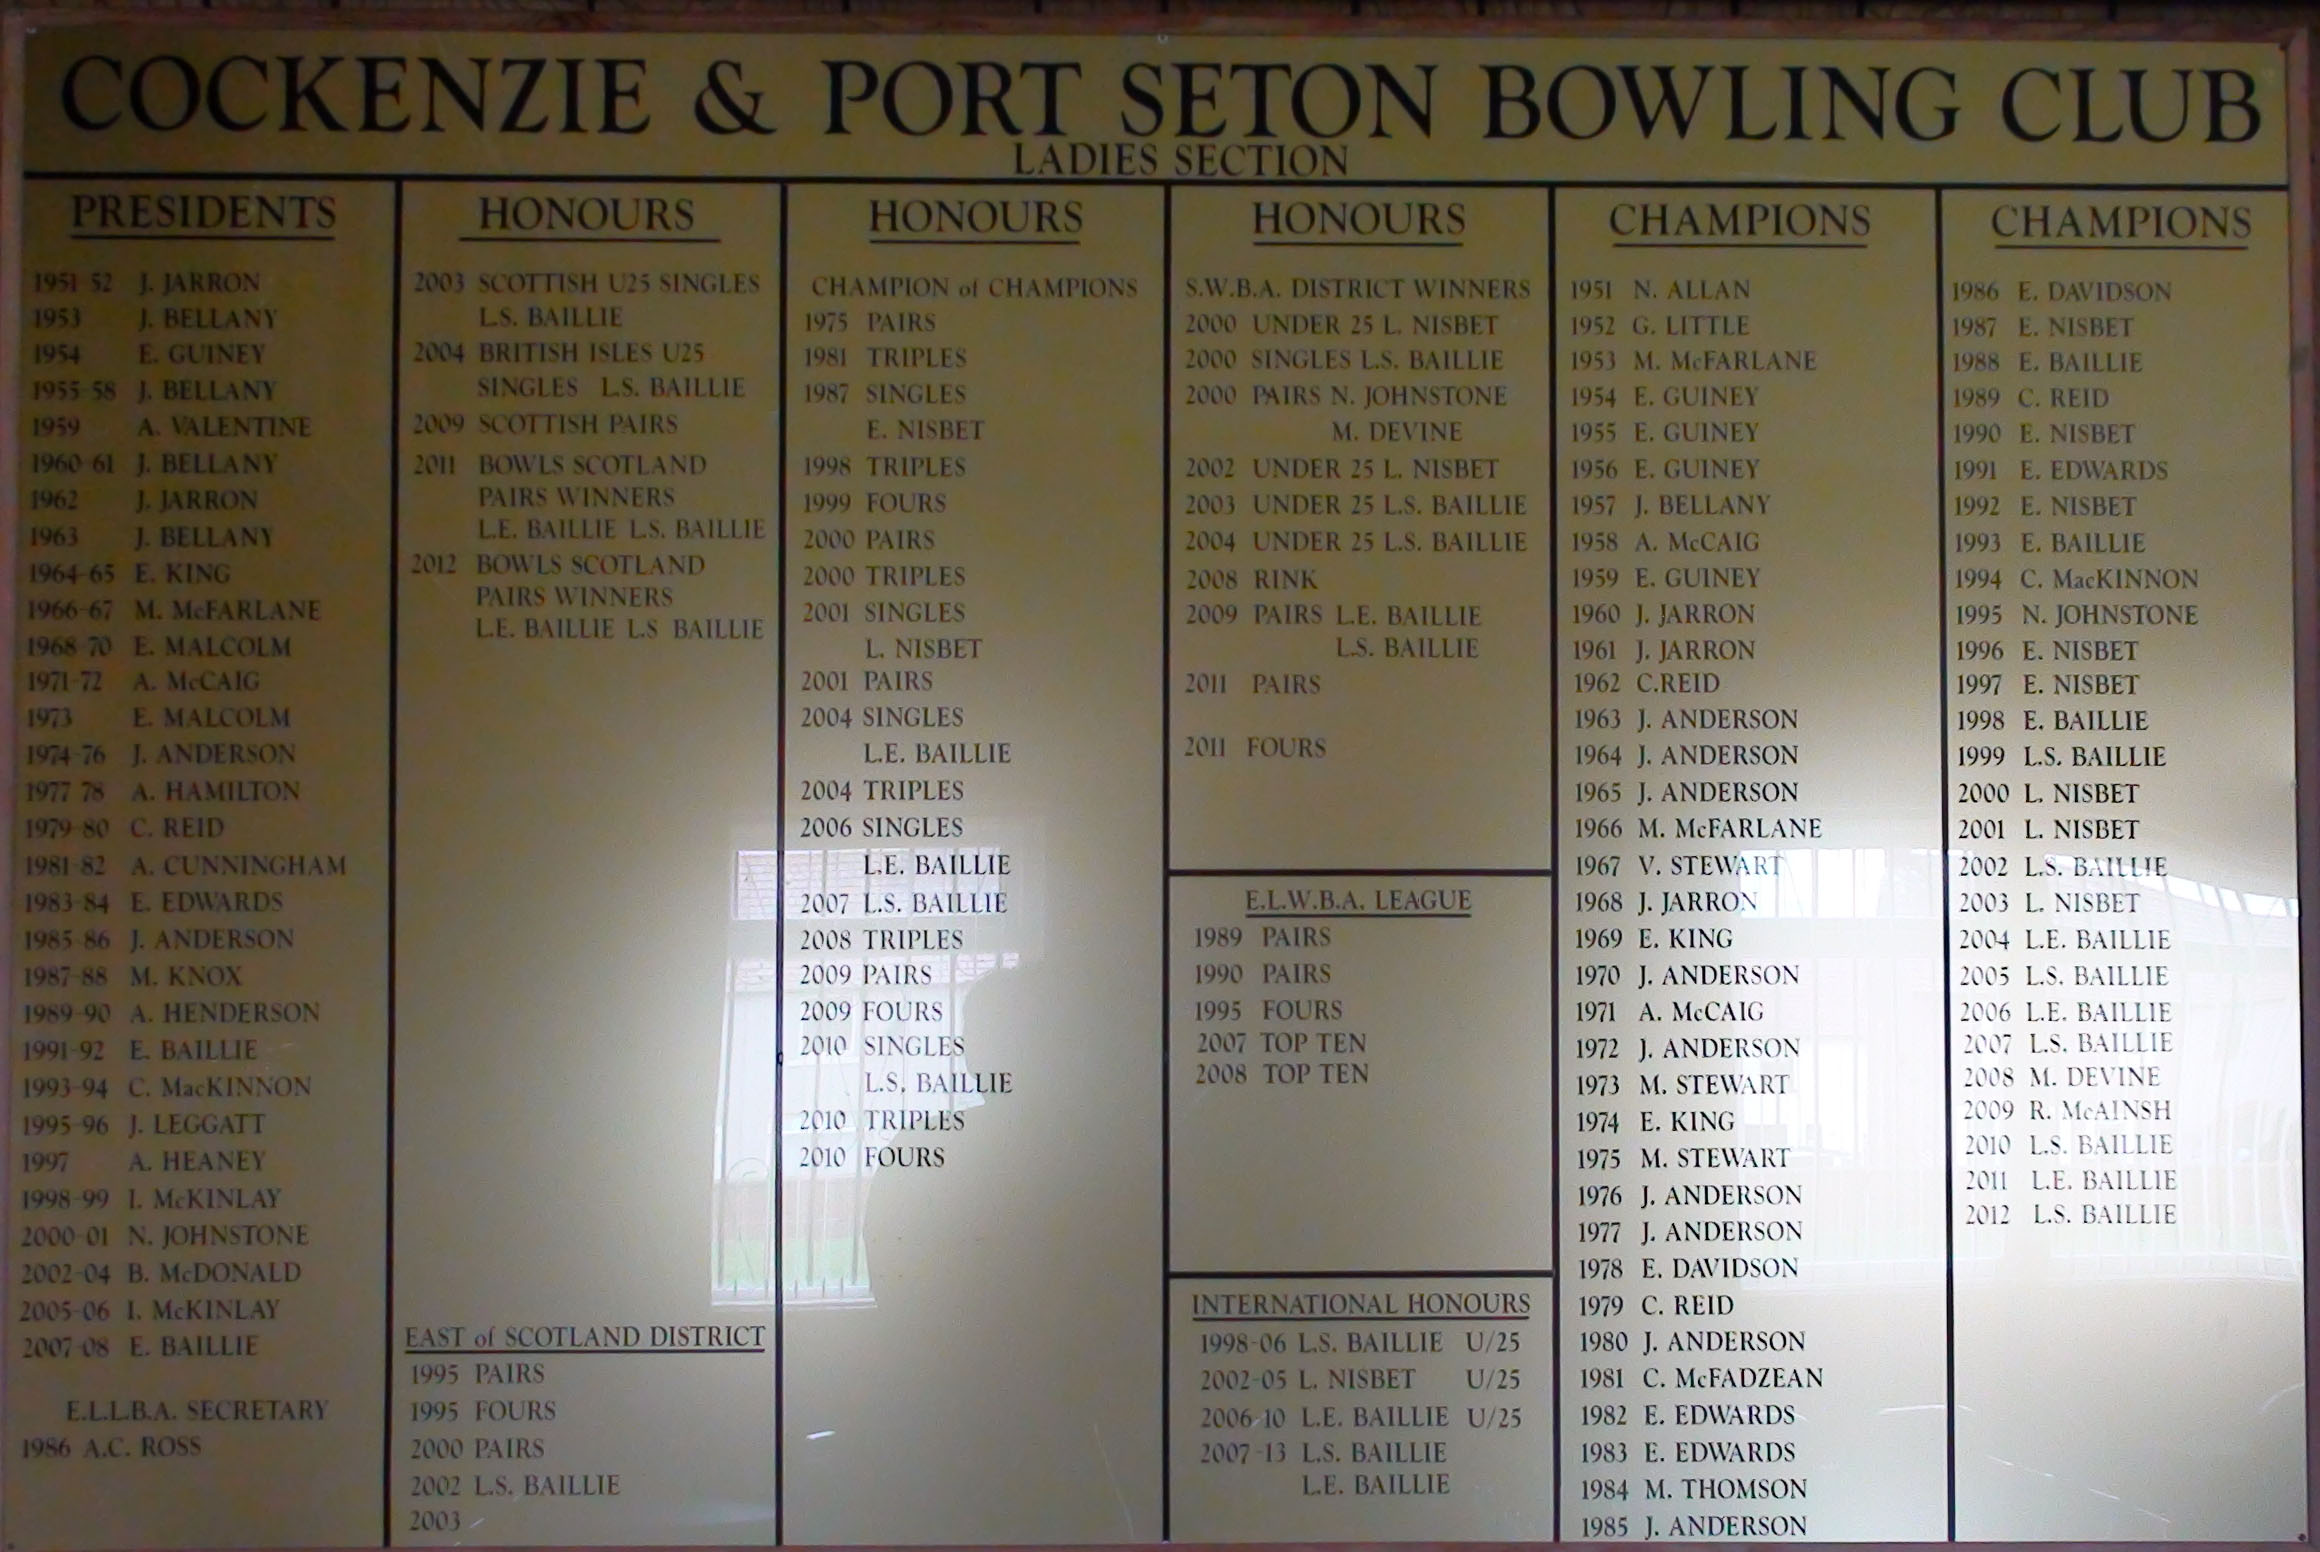 COCKENZIE & PORT SETON BOWLING CLUB
LADIES SECTION
PRESIDENTS
1951-52 J. JARRON
1953 J. BELLANY
1954 E. GUINEY
1955-58 J. BELLANY
1959 A. VALENTINE
1960-61 J. BELLANY
1962 J. JARRON
1963 J. BELLANY
1964-65 E. KING
1966-67 M. McFARLANE
1968-70 E. MALCOLM
1971-72 A. McCAIG
1973 E. MALCOLM
1974-76 J. ANDERSON
1977-78 A. HAMILTON
1979-80 C. REID
1981-82 A. CUNNINGHAM
1983-84 E. EDWARDS
1985-86 J. ANDERSON
1987-88 M. KNOX
1989-90 A. HENDERSON
1991-92 E. BAILLIE
1993-94 C. MacKINNON
1995-96 J. LEGGATT
1997 A. HEANEY
1998-99 I. McKINLAY
2000-01 N. JOHNSTONE
2002-04 B. McDONALD
2005-06 I. McKINLAY
2007-08 E. BAILLIE
E.L.L.B.A. SECRETARY
1986 A.C. ROSS
HONOURS
2003 SCOTTISH U25 SINGLES
L.S. BAILLIE
2004 BRITISH ISLES U25
SINGLES L.S. BAILLIE
2009 SCOTTISH PAIRS
2011 BOWLS SCOTLAND
PAIRS WINNERS
L.E. BAILLIE L.S. BAILLIE
2012 BOWLS SCOTLAND
PAIRS WINNERS
L.E. BAILLIE L.S BAILLIE
EAST of SCOTLAND DISTRICT
1995 PAIRS
1995 FOURS
2000 PAIRS
2002 L.S. BAILLIE
2003
HONOURS
CHAMPION of CHAMPIONS
1975 PAIRS
1981 TRIPLES
1987 SINGLES
E. NISBET
1998 TRIPLES
1999 FOURS
2000 PAIRS
2000 TRIPLES
2001 SINGLES
L. NISBET
2001 PAIRS
2004 SINGLES
L.E. BAILLIE
2004 TRIPLES
2006 SINGLES
L.E. BAILLIE
2007 L.S. BAILLIE
2008 TRIPLES
2009 PAIRS
2009 FOURS
2010 SINGLES
L.S. BAILLIE
2010 TRIPLES
2010 FOURS
HONOURS
S.W.B.A. DISTRICT WINNERS
2000 UNDER 25 L. NISBET
2000 SINGLES L.S. BAILLIE
2000 PAIRS N. JOHNSTONE
M. DEVINE
2002 UNDER 25 L. NISBET
2003 UNDER 25 L.S. BAILLIE
2004 UNDER 25 L.S. BAILLIE
2008 RINK
2009 PAIRS L.E. BAILLIE
L.S. BAILLIE
2011 PAIRS
2011 FOURS
E.L.W.B.A. LEAGUE
1989 PAIRS
1990 PAIRS
1995 FOURS
2007 TOP TEN
2008 TOP TEN
INTERNATIONAL HONOURS
1998-06 L.S. BAILLIE U/25
2002-05 L. NISBET U/25
2006-10 L.E. BAILLIE U/25
2007-13 L.S. BAILLIE
L.E. BAILLIE
CHAMPIONS
1951 N. ALLAN
1952 G. LITTLE
1953 M. McFARLANE
1954 E. GUINEY
1955 E. GUINEY
1956 E. GUINEY
1957 J. BELLANY
1958 A. McCAIG
1959 E. GUINEY
1960 J. JARRON
1961 J. JARRON
1962 C.REID
1963 J. ANDERSON
1964 J. ANDERSON
1965 J. ANDERSON
1966 M. McFARLANE
1967 V. STEWART
1968 J. JARRON
1969 E. KING
1970 J. ANDERSON
1971 A. McCAIG
1972 J. ANDERSON
1973 M. STEWART
1974 E. KING
1975 M. STEWART
1976 J. ANDERSON
1977 J. ANDERSON
1978 E. DAVIDSON
1979 C. REID
1980 J. ANDERSON
1981 C. McFADZEAN
1982 E. EDWARDS
1983 E. EDWARDS
1984 M. THOMSON
1985 J. ANDERSON
CHAMPIONS
1986 E. DAVIDSON
1987 E. NISBET
1988 E. BAILLIE
1989 C. REID
1990 E. NISBET
1991 E. EDWARDS
1992 E. NISBET
1993 E. BAILLIE
1994 C. MacKINNON
1995 N. JOHNSTONE
1996 E. NISBET
1997 E. NISBET
1998 E. BAILLIE
1999 L.S. BAILLIE
2000 L. NISBET
2001 L. NISBET
2002 L.S. BAILLIE
2003 L. NISBET
2004 L.E. BAILLIE
2005 L.S. BAILLIE
2006 L.E. BAILLIE
2007 L.S. BAILLIE
2008 M. DEVINE
2009 R. McAINSH
2010 L.S. BAILLIE
2011 L.E. BAILLIE
2012 L.S. BAILLIE